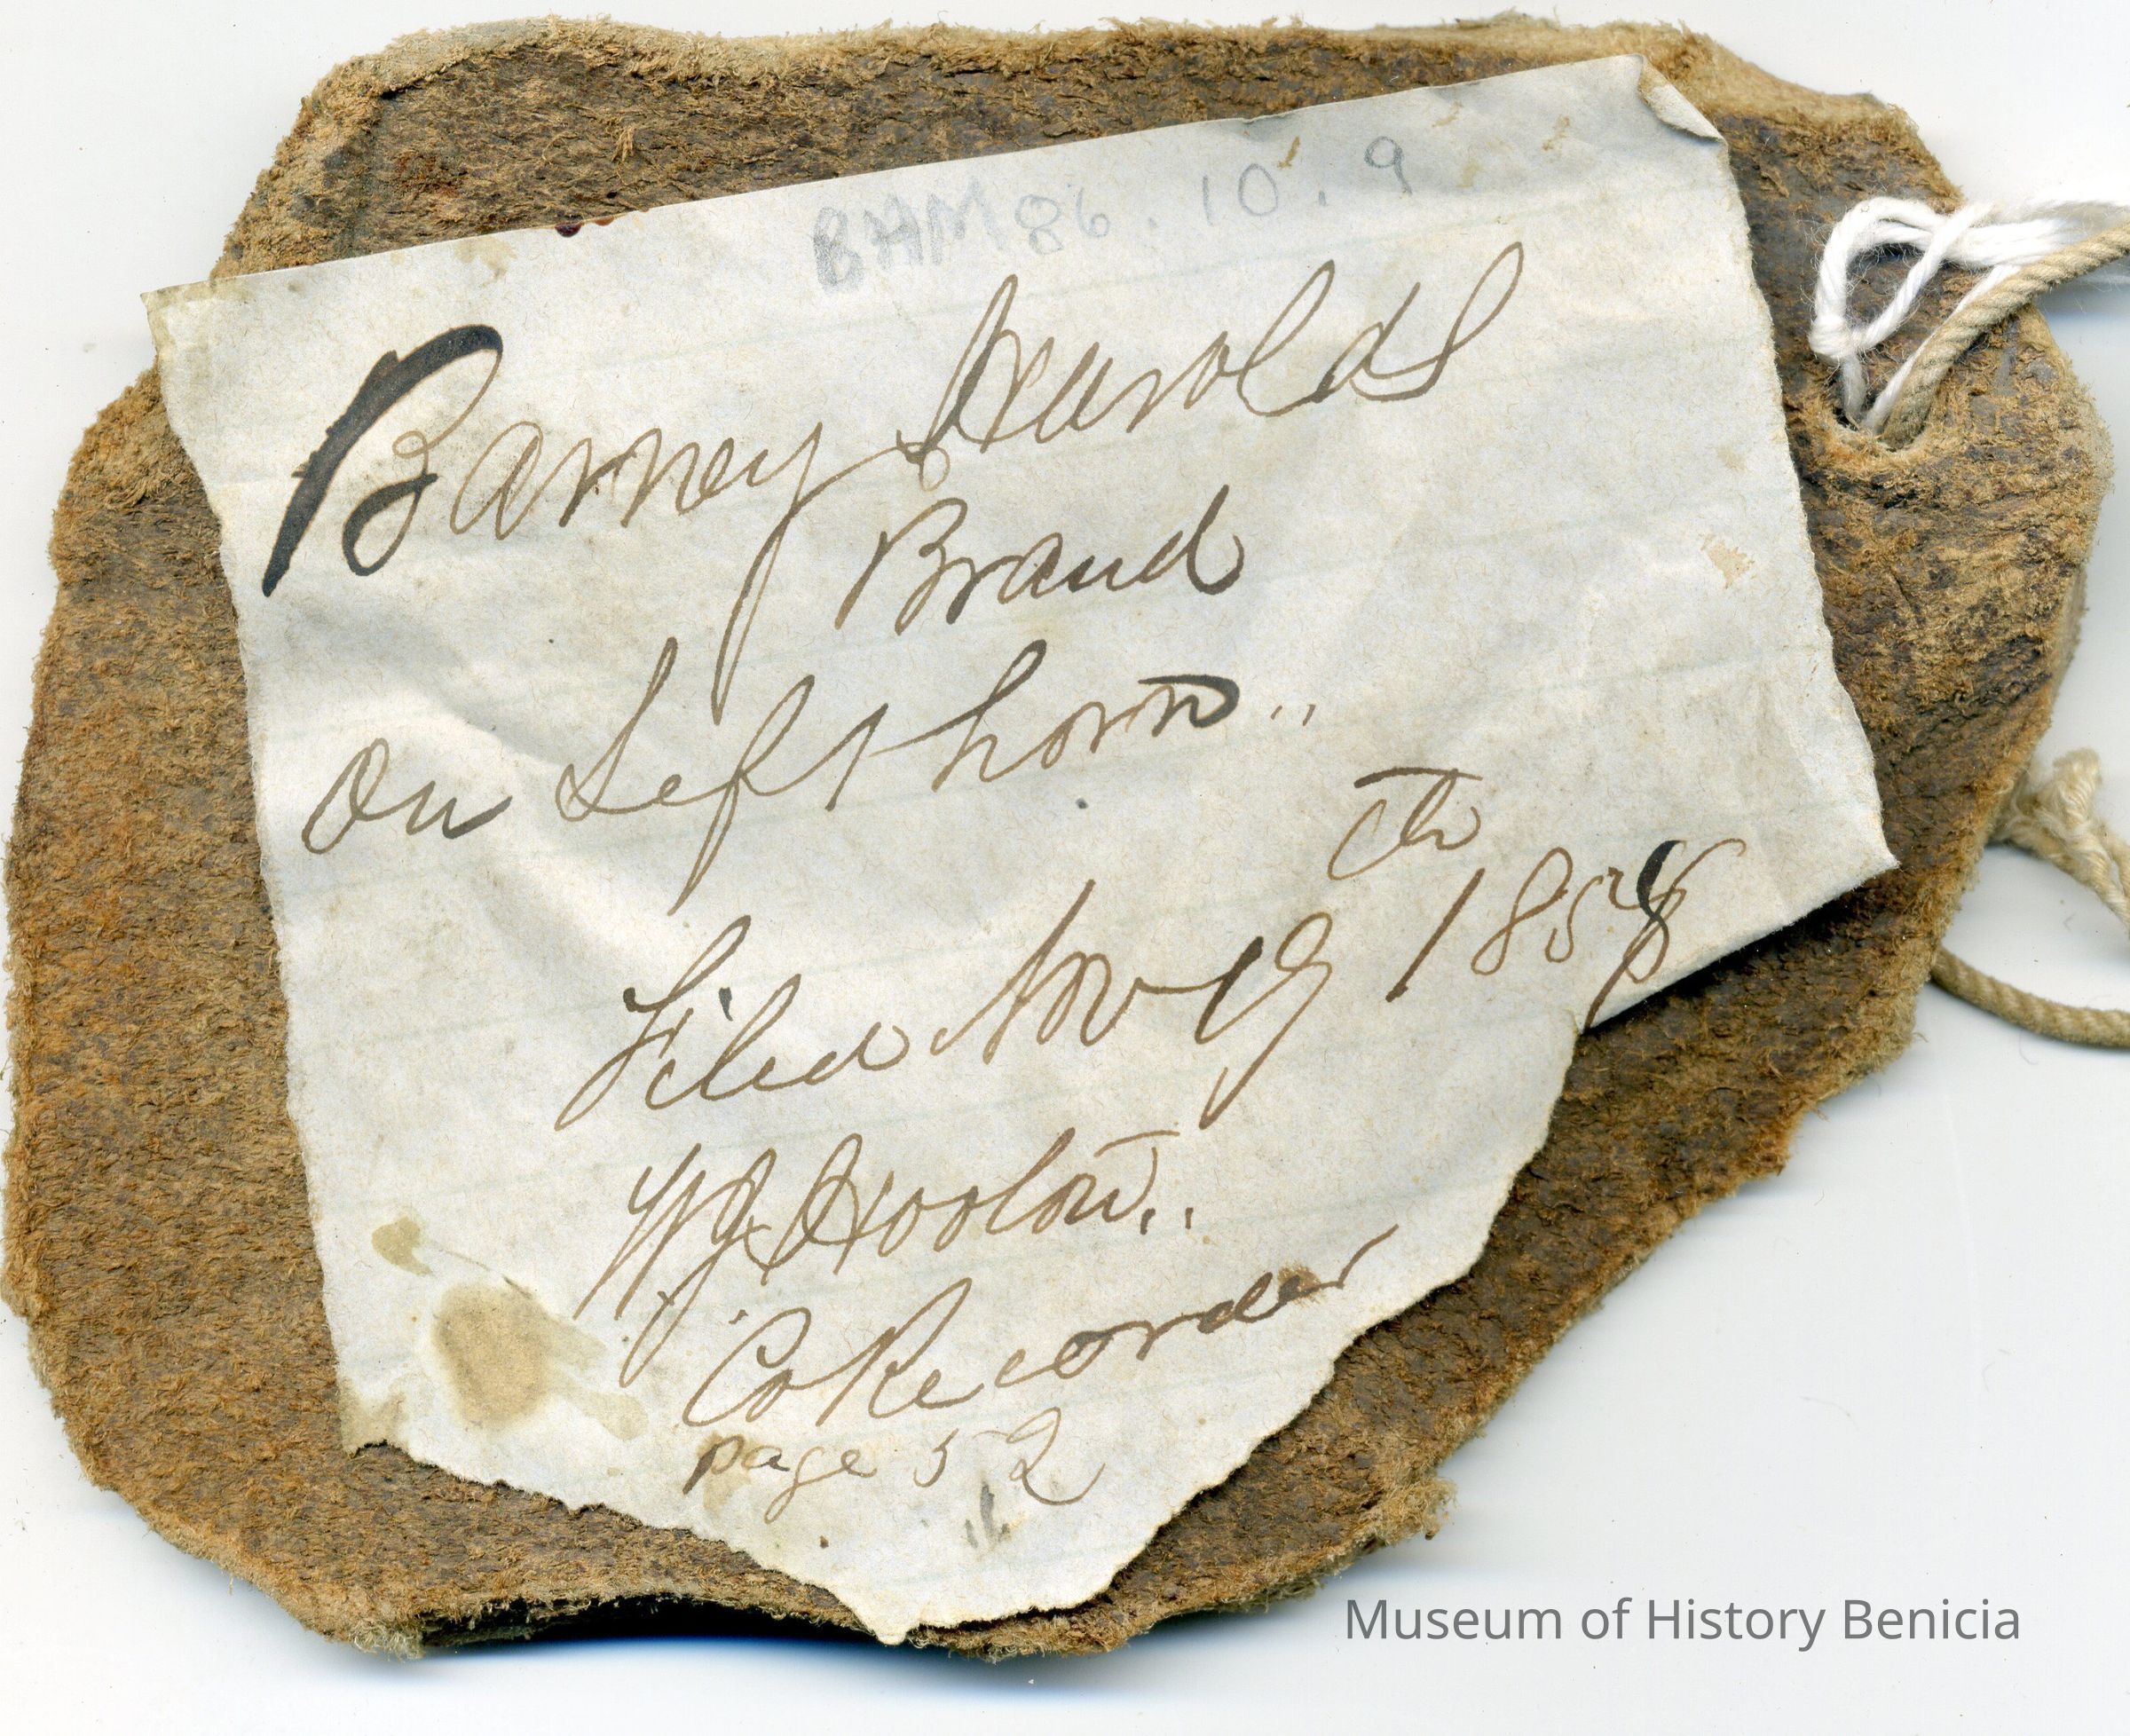 BHM 86.10.9
Barney Harolds
Brand
on Left horn
Filed Nov 19th 185
WJ Hooton
Co Recorder
page 52
Museum of History Benicia